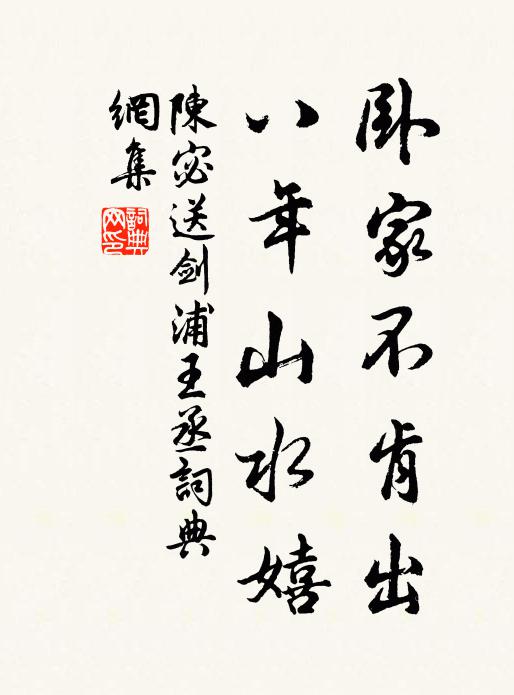 卧家不肯出
八年山水嬉
陳宓送劍浦王丞詞典
網集
詞典
网印